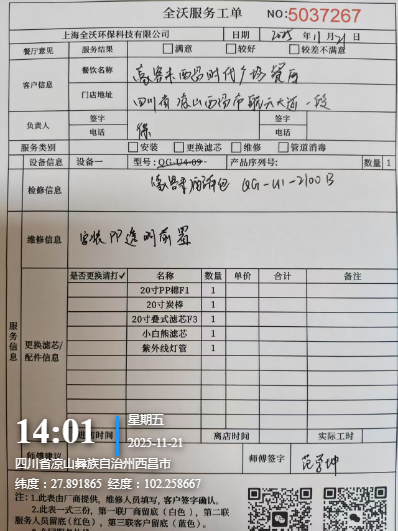 全沃服务工单 NO:5037267
上海全沃环保科技有限公司 日期 2025 11/21
餐厅意见 服务结果 □满意 □较好 □较差不满意
客户信息 餐饮名称 西昌时代广场餐厅
门店地址 四川省凉山西昌市航天大道一段
负责人 签字
电话
服务类别 □安装 □更换滤芯 □维修 □管道消毒
设备信息 设备一 型号:QG-U4-09 产品序列号: 数量 1
检修信息 QG-U1-2100B
维修信息 安装PP透明前置
服务信息
更换滤芯/配件信息
是否更换请打✓ 名称 数量 单价 合计 备注
20寸PP棉F1 1
20寸炭棒 1
20寸叠式滤芯F3 1
小白熊滤芯 1
紫外线灯管 1
进店时间 离店时间 实际工时
师傅建议 师傅签字
14:01 星期五
2025-11-21
四川省凉山彝族自治州西昌市
纬度：27.891865 经度：102.258667
注:1.此表由厂商提供，维修人员填写，客户签字确认。
2.此表一式三份，第一联厂商留底（白色），第二联
服务人员留底(红色)，第三联客户留底（蓝色）。